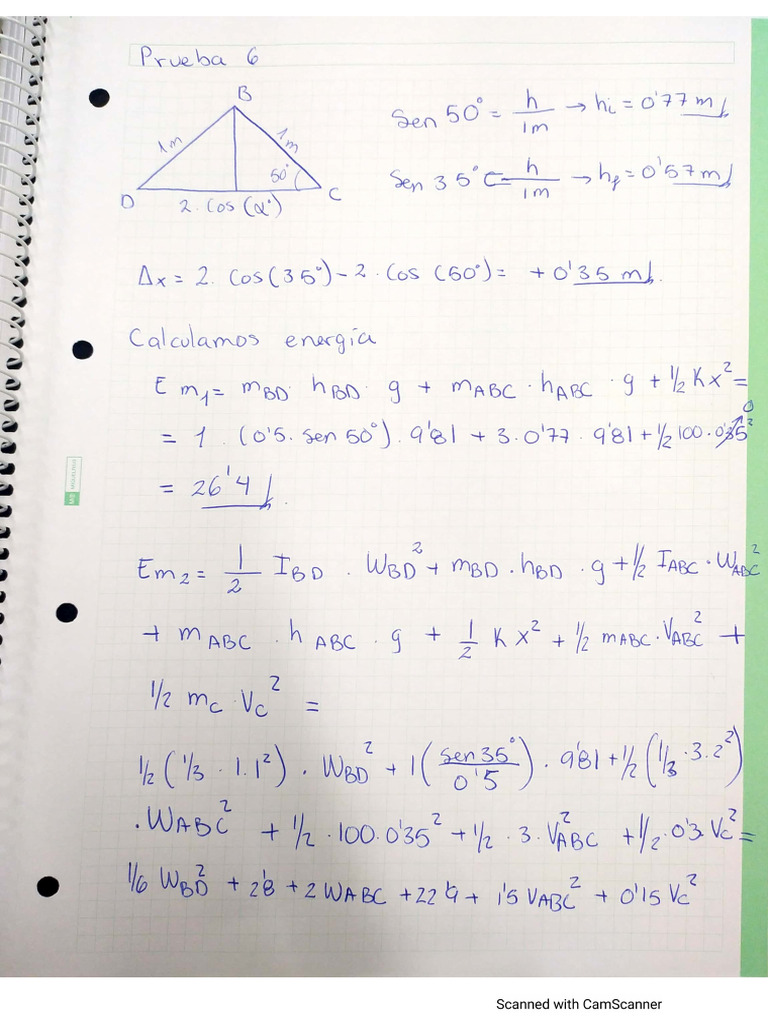 Prueba 6
B
1m
1m
50°
D
C
2. Cos (α°)
Sen 50° = h/1m → hi = 0'77 m
Sen 35° = h/1m → hf = 0'57 m
Δx = 2. Cos(35°) - 2. Cos (50°) = + 0'35 m.
Calculamos energía
Em1 = mBD · hBD · g + mABC · hABC · g + 1/2 Kx² =
= 1 · (0'5. sen 50°) · 9'81 + 3. 0'77 · 9'81 + 1/2 100. 0'35² 0
= 26'4 J.
Em2 = 1/2 IBD · WBD² + mBD · hBD · g + 1/2 IABC · WABC²
+ mABC · hABC · g + 1/2 Kx² + 1/2 mABC · VABC² +
1/2 mC · VC² =
1/2 (1/3 · 1.1²) · WBD² + 1 (sen 35°/0'5) · 9'81 + 1/2 (1/3 · 3.2²)
· WABC² + 1/2 · 100. 0'35² + 1/2 · 3. VABC² + 1/2 · 0'3. VC² =
1/6 WBD² + 2'8 + 2 WABC + 22'9 + 1'5 VABC² + 0'15 VC²
MIQUELRIUS
Scanned with CamScanner